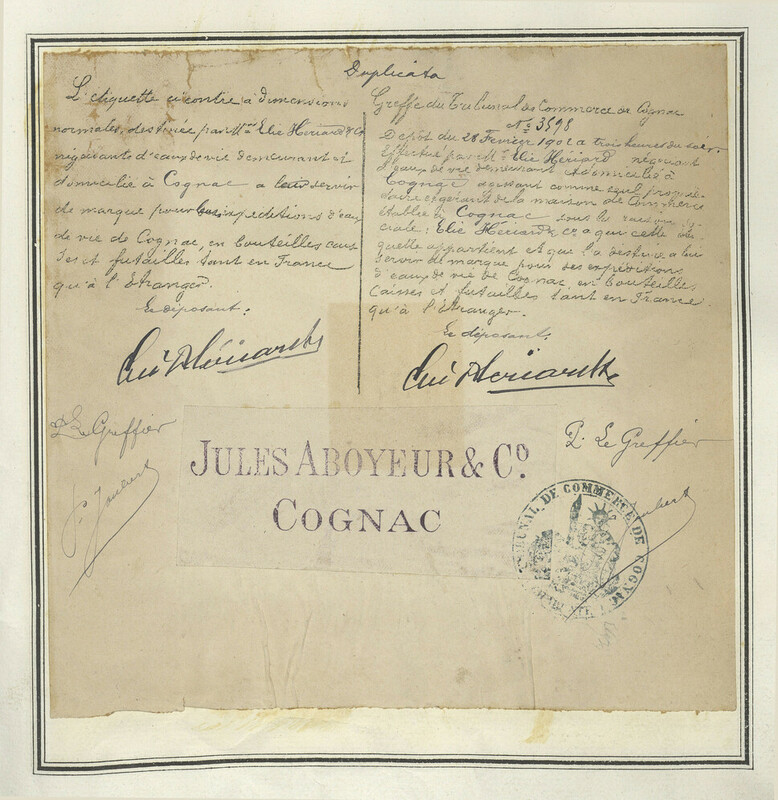 Duplicata
L'étiquette ci contre à dimensions
normales, destinée par Mr Elie Hériard & Co
négociants d'eaux de vie demeurant et
domicilié à Cognac a leur servir
de marque pour expéditions d'eaux
de vie de Cognac, en bouteilles cais
ses et futailles tant en France
qu'à l'Etranger.
Le déposant:
Elie Hériard
Greffe du Tribunal de Commerce de Cognac
No 3598
Dépôt du 28 Février 1902 à trois heures du soir
Effectué par Mr Elie Hériard, négociant
d'eaux de vie demeurant et domicilié à
Cognac agissant comme seul proprié
taire et gérant de la maison de Commerce
établie à Cognac sous la raison so
ciale: Elie Hériard & Co a qui cette éti
quette appartient et qui l'a destinée a lui
servir de marque pour ses expéditions
d'eaux de vie de Cognac, en bouteilles,
Caisses et futailles tant en France
qu'à l'étranger.
Le déposant,
Elie Hériard
P. Le Greffier
P. Le Greffier
JULES ABOYEUR & Co.
COGNAC
TRIBUNAL DE COMMERCE DE COGNAC